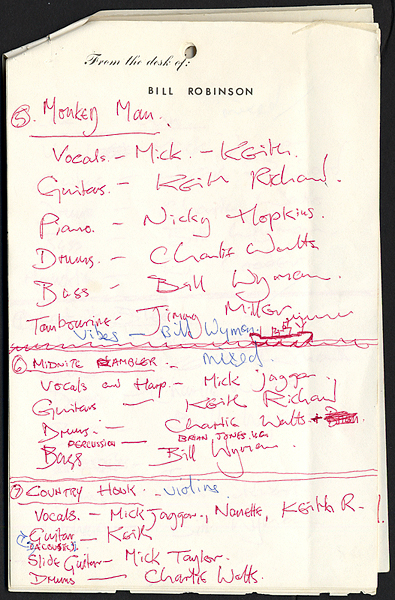 From the desk of:
BILL ROBINSON
5. Monkey Man.
Vocals. - Mick. - Keith.
Guitars. - Keith Richard.
Piano. - Nicky Hopkins.
Drums. - Charlie Watts
Bass - Bill Wyman.
Tambourine - Jimmy Miller
Vibes - Bill Wyman.
6 MIDNITE RAMBLER. - mixed.
Vocals and Harp. - Mick Jagger
Guitars - Keith Richard
Drums. - Charlie Watts +
PERCUSSION - BRIAN JONES.
Bass - Bill Wyman
7 COUNTRY HONK. - Violins
Vocals. - Mick Jagger, Nanette, Keith R -
Guitar - Keith
(ACOUSTIC).
Slide Guitar - Mick Taylor.
Drums - Charlie Watts.